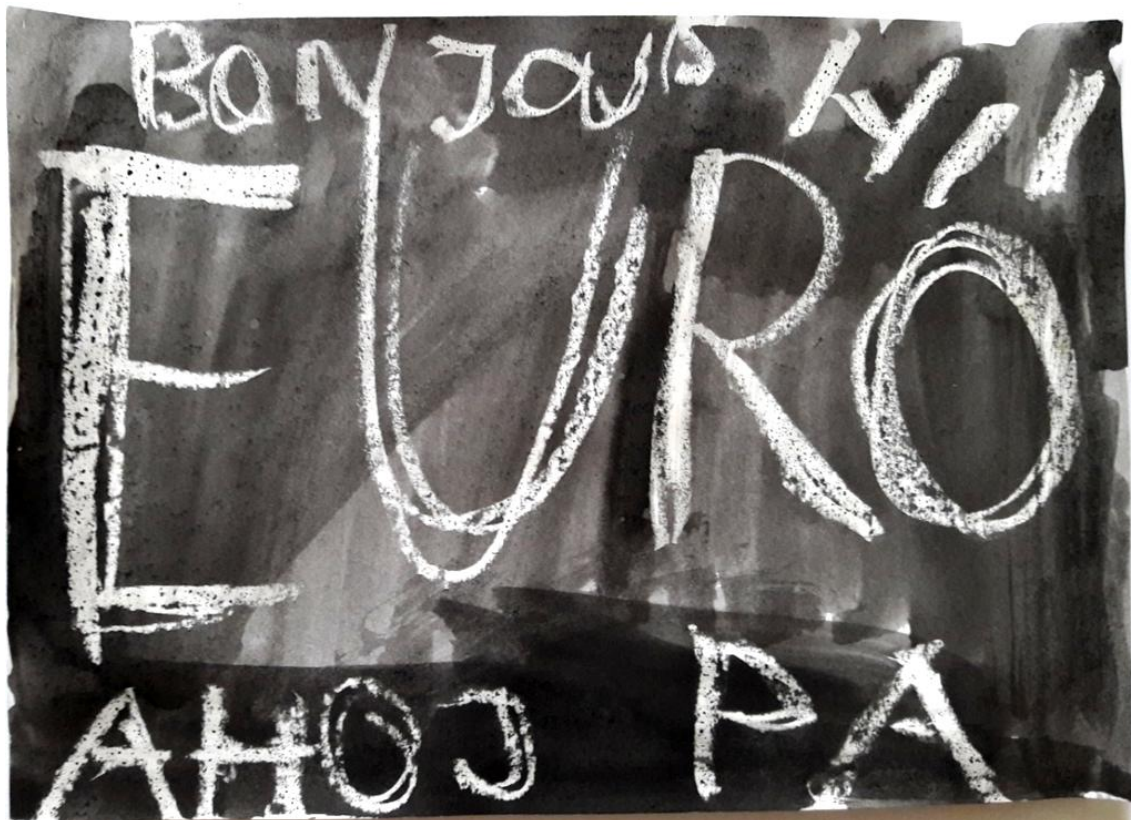 BONJOUR
EURO
AHOJ PA